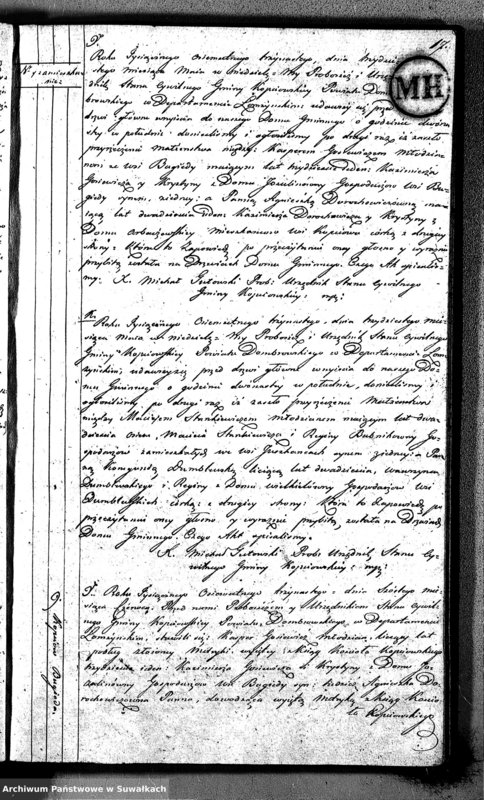 17.
MH
Roku Tysiącznego Osiemsetnego trzynastego, dnia trzydzie
stego miesiąca Maia w niedzielę. My Proboszcz i Urzę
dnik Stanu Cywilnego Gminy Kopciowskiey Powiatu Dom
browskiego w Departamencie Łomżyńskim; udawszy się przed
drzwi główne weyścia do naszego Domu Gminnego o godzinie dwuna
sty w południe; donieśliśmy i ogłosiliśmy po drugi raz iż zaszło
przyrzeczenie małżeństwa między: Kasprem Gosiewiczem Młodzia
nem ze wsi Bugiedy maiącym lat trzydzieście ieden; Kazimierza
Gosiewicza y Krystyny z Domu Gospodarzów wsi Bu
giedy synem, z iedney; a Panną Agnieszką Dorochowiczowną ma
iącą lat dwadzieścia ieden Kazimierza Dorochowicza y Krystyny z
Domu Mieszkańców wsi Kopciowa córką z drugiey
strony: Która to zapowiedź po przeczytaniu oney głośno y wyraźno
przybitą została na Drzwiach Domu Gminnego. Czego Akt spisaliś
my. X. Michał Jutowski Prob: Urzędnik Stanu Cywilnego
Gminy Kopciowskiey: mpp:
Roku Tysiącznego Osiemsetnego trzynastego, dnia trzydziestego mie
siąca Maia w niedzielę. My Proboszcz i Urzędnik Stanu Cywilnego
Gminy Kopciowskiey Powiatu Dombrowskiego w Departamencie Łom
żyńskim; udawszy się przed drzwi główne weyścia do naszego Do
mu Gminnego o godzinie dwunastey w południe, donieśliśmy i
ogłosiliśmy po drugi raz iż zaszło przyrzeczenie Małżeństwa
między Macieiem Stankiewiczem młodzianem maiącym lat dwa
dzieścia ośm, Macieia Stankiewicza i Reginy Go
spodarzów zamieszkałych we wsi synem z iedney: a Pan
ną Konegundą Dumblewską liczącą lat dwadzieścia, Wawrzynca
Dumblewskiego i Reginy z Domu Gospodarzów wsi
córką: z drugiey strony: która to zapowiedź po
przeczytaniu oney głośno y wyraźno przybitą została na Drzwiach
Domu Gminnego. Czego Akt spisaliśmy.
X. Michał Jutowski Prob: Urzędnik Stanu Cy
wilnego Gminy Kopciowskiey: mpp:
Roku Tysiącznego Osiemsetnego trzynastego: dnia Szóstego mie
siąca Czerwca. Przed nami Proboszczem y Urzędnikiem Stanu Cywil
nego Gminy Kopciowskiey Powiatu Dombrowskiego, w Departamencie
Łomżyńskim, stawili się: Kasper Gosiewicz młodzian, liczący lat
podług złożoney Metryki, wyiętey z Ksiąg Kościoła Kopciowskiego
trzydzieście ieden: Kazimierza Gosiewicza y Krystyny z Domu
Gospodarzów wsi Bugiedy syn; tudzież Agnieszka Do
rochowiczowna Panna, dowodząca wyiętą Metryką z Ksiąg Kościo
ła Kopciowskiego
Archiwum Państwowe w Suwałkach